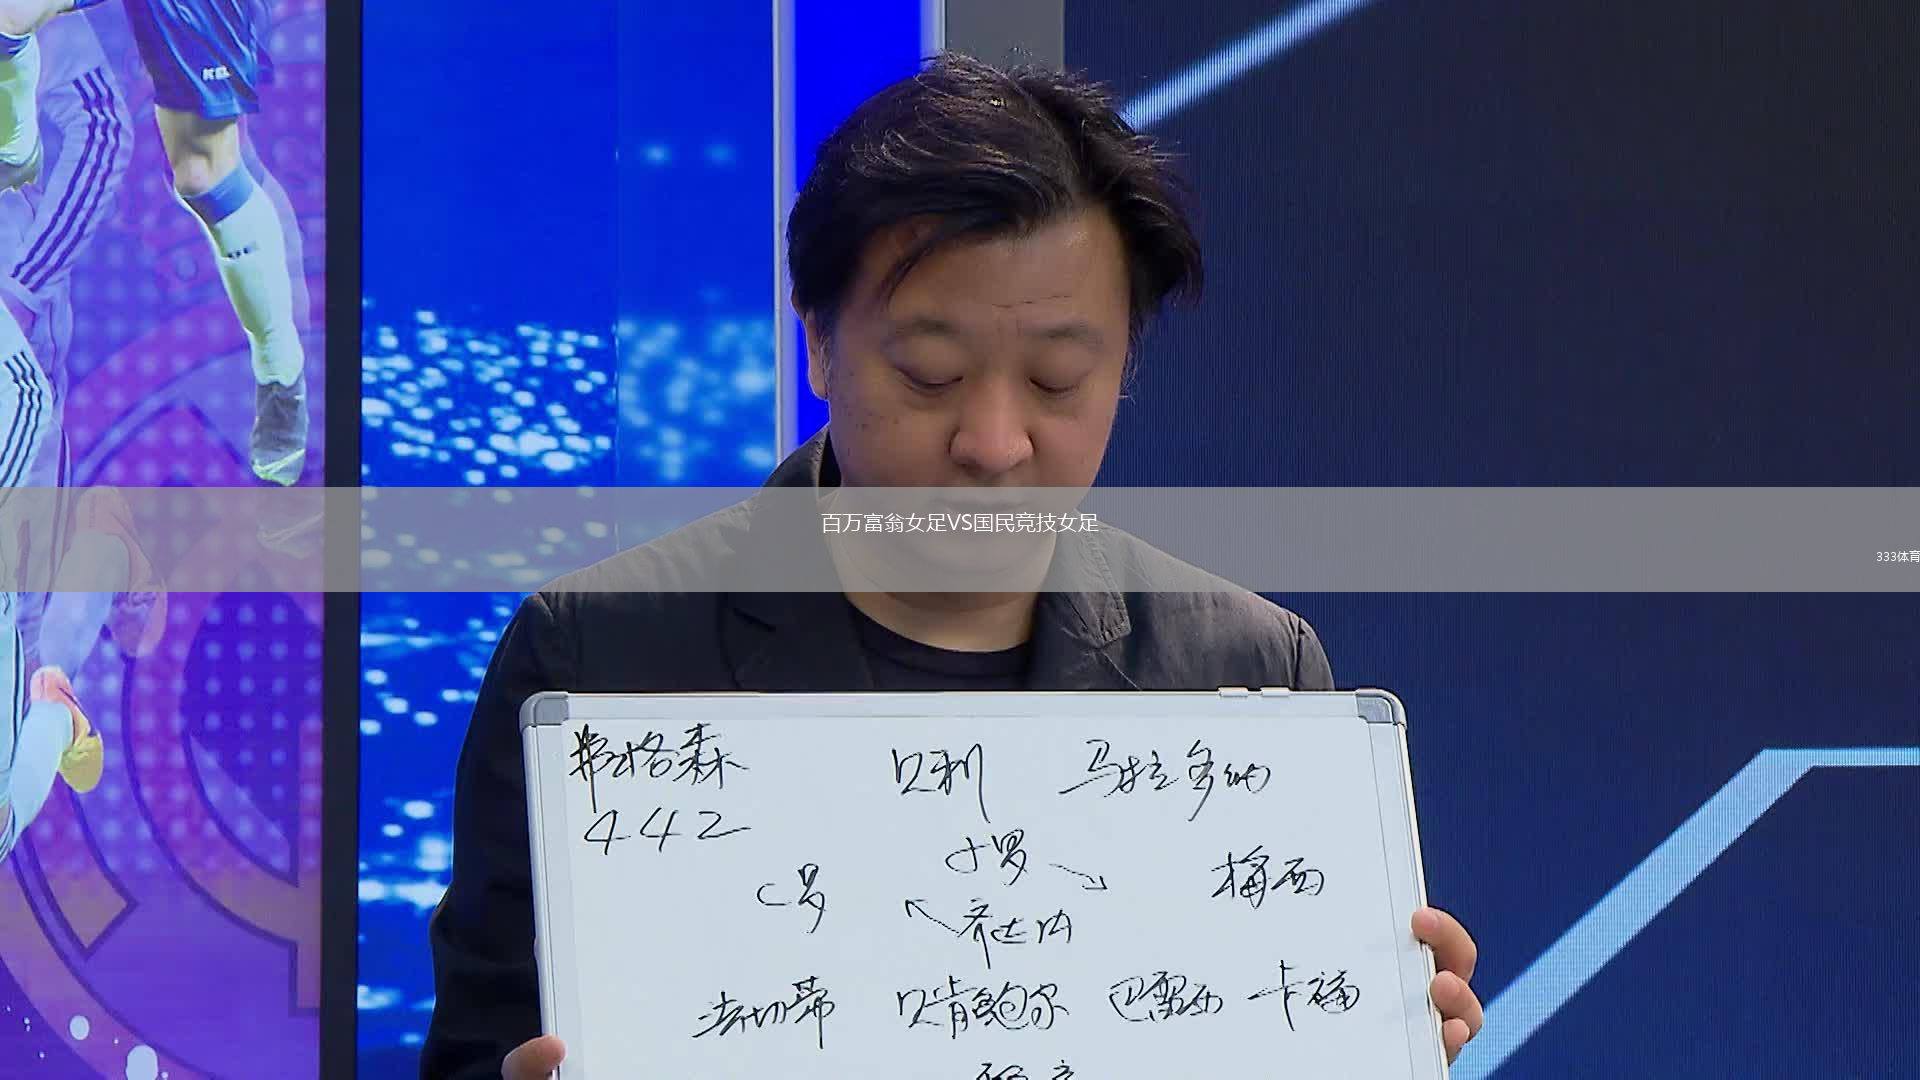 百万富翁女足VS国民竞技女足
333体育
弗格森 贝利 马拉多纳
442
小罗
C罗 梅西
齐达内
法切蒂 贝肯鲍尔 巴雷西 卡福